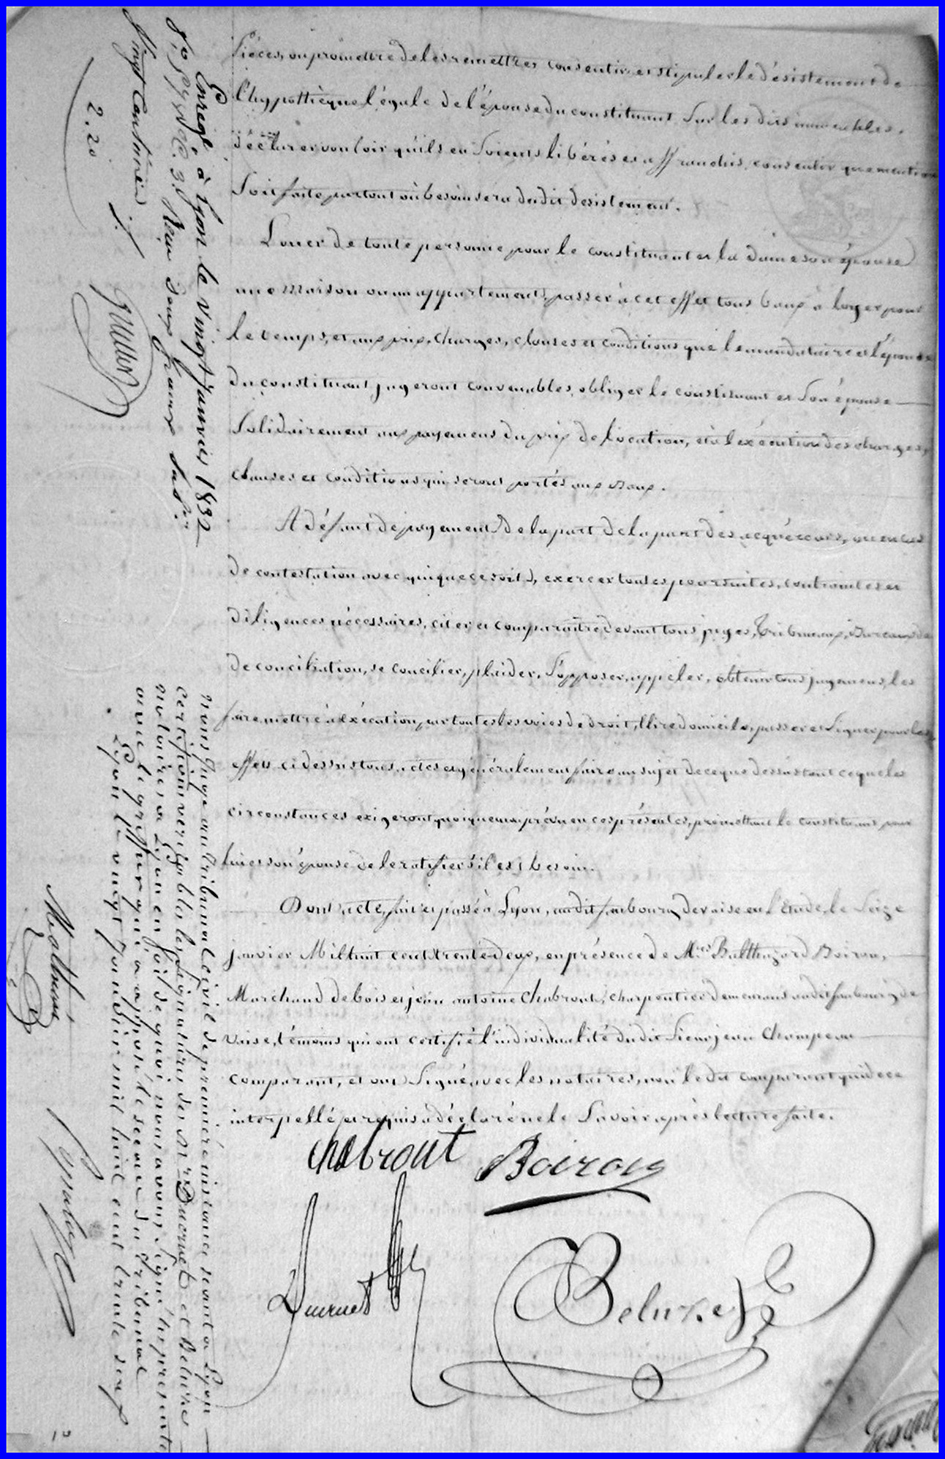 pièces, ou promettre de les remettre, consentir et stipuler le désistement de
l'hypothèque légale de l'épouse du constituant sur les dits immeubles,
déclarer vouloir qu'ils en soient libérés et affranchis, consentir que mention
soit faite partout où besoin sera dudit désistement.
Louer de toute personne pour le constituant et la dame son épouse
une maison ou un appartement, passer à cet effet tous baux à loyer pour
le temps, et aux prix, charges, clauses et conditions que le mandataire et l'épouse
du constituant jugeront convenables, obliger le constituant et son épouse
solidairement aux payemens du prix de location, et à l'exécution des charges,
clauses et conditions qui seront portés aux baux.
A défaut de payement de la part de la part des acquéreurs, ou en cas
de contestation avec qui que ce soit, exercer toutes poursuites, contraintes et
diligences nécessaires, citer et comparaître devant tous juges, tribunaux, Bureaux de
de conciliation, se concilier, plaider, s'opposer, appeler, obtenir tous jugemens, les
faire mettre à exécution par toutes les voies de droit, élire domicile, passer et signer pour les
effets ci dessus tous actes et généralement faire au sujet de ce que dessus tout ce que les
circonstances exigeront quoique non prévu en ces présentes, promettant le constituant pour
lui et son épouse de le ratifier s'il est besoin.
Dont acte, fait et passé à Lyon, audit faubourg de vaise en l'Etude, le Seize
janvier Mil huit cent trente deux, en présence de Mrs Balthazard Boiron,
Marchand de bois et jean antoine Chabrout, charpentier demeurans audit faubourg de
vaise, témoins qui ont certifié l'individualité du dit sieur jean Champeau
comparant, et ont signé avec les notaires, non le dit comparant qui de ce
interpellé et requis a déclaré ne le savoir, après lecture faite.
Chabrout Boiron
Ducruet
Beluze
Enregé à Lyon le vingt janvier 1832
fo 37 Vo C. 3 Reçu deux francs
vingt centimes
2.20
nous juge au tribunal civil de première instance séant à Lyon
certifions véritables les signatures des Srs Ducruet et Beluze
notaires à Lyon en foi de quoi nous avons signé la présente
avec le greffier qui a apposé le sceau du tribunal
Lyon le vingt janvier mil huit cent trente deux